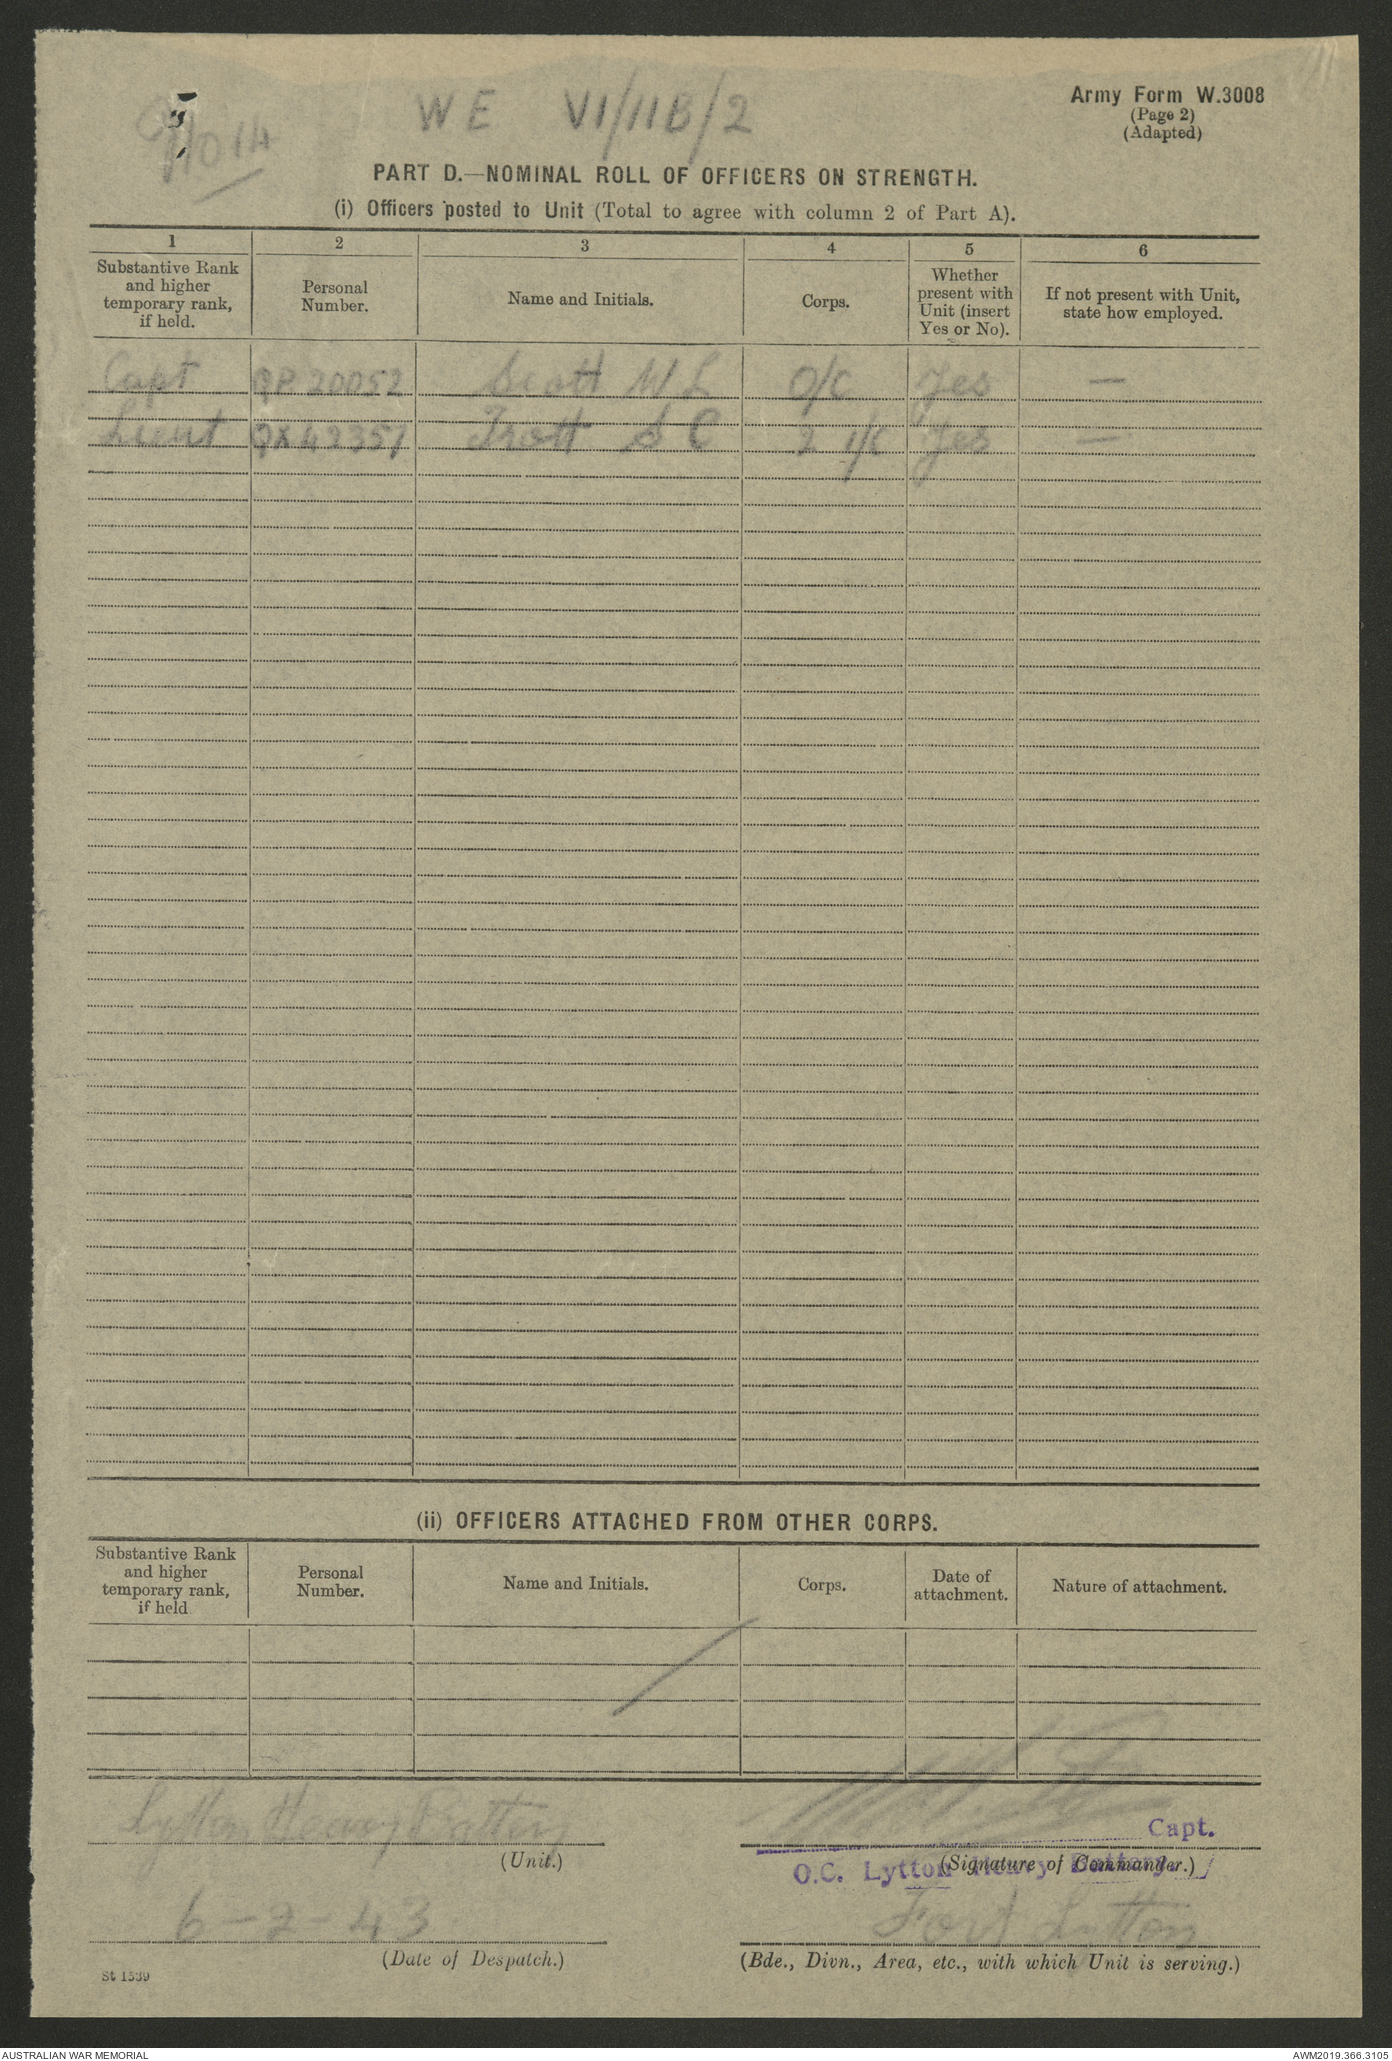 WE VI/11B/2
Army Form W.3008
(Page 2)
(Adapted)
PART D.—NOMINAL ROLL OF OFFICERS ON STRENGTH.
(i) Officers posted to Unit (Total to agree with column 2 of Part A).
1 2 3 4 5 6
Substantive Rank and higher temporary rank, if held. Personal Number. Name and Initials. Corps. Whether present with Unit (insert Yes or No). If not present with Unit, state how employed.
Capt QP 20052 Scott W L O/C Yes —
Lieut QX42351 Trott S C 2 I/C Yes —
(ii) OFFICERS ATTACHED FROM OTHER CORPS.
Substantive Rank and higher temporary rank, if held Personal Number. Name and Initials. Corps. Date of attachment. Nature of attachment.
Lytton Heavy Battery
(Unit.)
Capt.
(Signature of Commander.)
O.C. Lytton Heavy Battery
6-2-43
(Date of Despatch.)
Fort Lytton
(Bde., Divn., Area, etc., with which Unit is serving.)
St 1539
AUSTRALIAN WAR MEMORIAL
AWM2019.366.3105